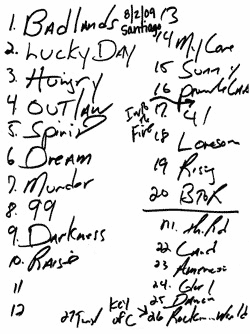 1. Badlands
2. Lucky Day
3. Hungry
4 Outlaw
5. Spirit
6 Dream
7. Murder
8. 99
9. Darkness
10. Raise
11
12
8/2/09
Santiago
13
14 My Love
15 Sunny
16 Promise
17 41
Into the Fire
18 Lonesom
19 Rising
20 BTOR
21. Third
22. Cand
23 American
24. Girl
25 Dancin
26 Rockin World
27 Twist
Key of C